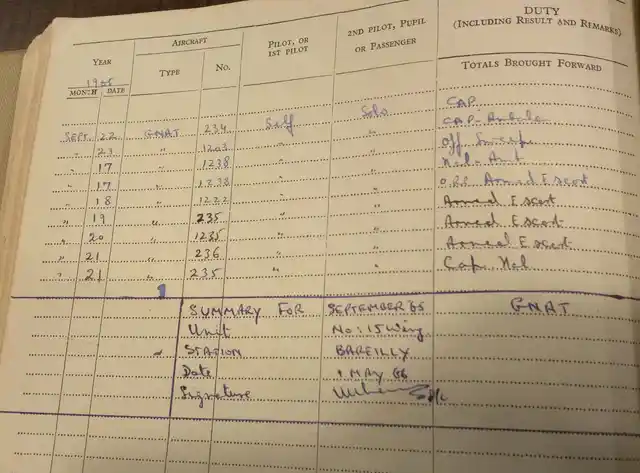 YEAR
1965
MONTH DATE
AIRCRAFT
TYPE No.
PILOT, OR
1ST PILOT
2ND PILOT, PUPIL
OR PASSENGER
DUTY
(INCLUDING RESULT AND REMARKS)
TOTALS BROUGHT FORWARD
SEPT. 22 GNAT 234 Self Solo CAP
" 23 " 1203 " " CAP-Ambala
" 17 " 1238 " " Off. Sweep
" 17 " 1238 " " Hal-
" 18 " 1222 " " Armed Escort
" 19 " 235 " " Armed Escort
" 20 " 1235 " " Armed Escort
" 21 " 236 " " Armed Escort
" 21 " 235 " " Cap. Hal
1
SUMMARY FOR SEPTEMBER '65 GNAT
Unit No: 15 Wing
STATION BAREILLY
Date MAY 66
Signature